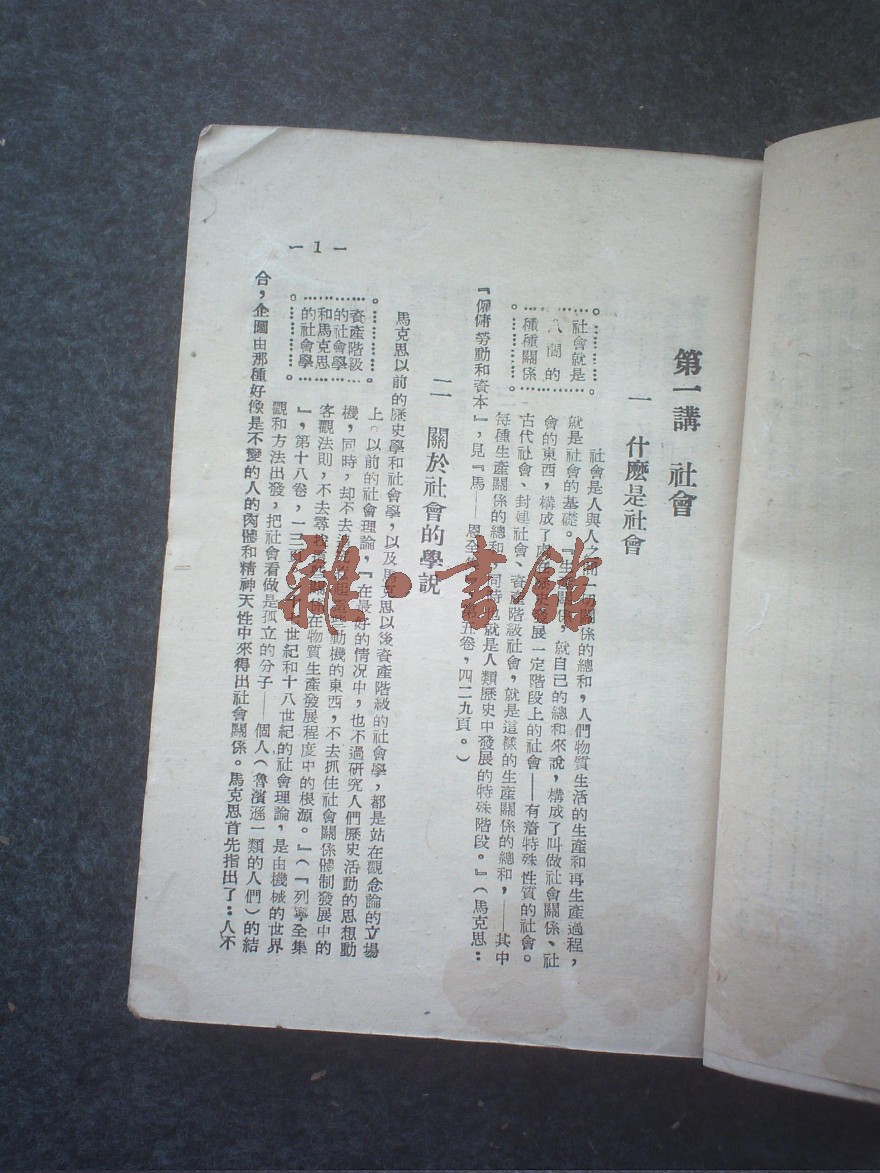 第一講 社會
一 什麽是社會
社會就是
人間的
種種關係
社會是人與人之間一切關係的總和，人們物質生活的生產和再生產過程，
就是社會的基礎。『生產關係，就自己的總和來說，構成了叫做社會關係、社
會的東西，構成了處在歷史發展一定階段上的社會——有着特殊性質的社會。
古代社會、封建社會、資產階級社會，就是這樣的生產關係的總和，——其中
每種生產關係的總和，同時也就是人類歷史中發展的特殊階段。』（馬克思：
『僱傭勞動和資本』，見『馬——恩全集』第五卷，四二九頁。）
二 關於社會的學説
馬克思以前的歷史學和社會學，以及馬克思以後資產階級的社會學，都是站在觀念論的立場
資產階級
的社會學
和馬克思
的社會學
上。以前的社會理論，『在最好的情况中，也不過研究人們歷史活動的思想動
機，同時，却不去 動機的東西，不去抓住社會關係體制發展中的
客觀法則，不去尋找 在物質生產發展程度中的根源。』（『列寧全集
』，第十八卷，一三頁） 世紀和十八世紀的社會理論，是由機械的世界
觀和方法出發，把社會看做是孤立的分子——個人（魯濱遜一類的人們）的結
合，企圖由那種好像是不變的人的肉體和精神天性中來得出社會關係。馬克思首先指出了：人不
— 1 —
雜·書館